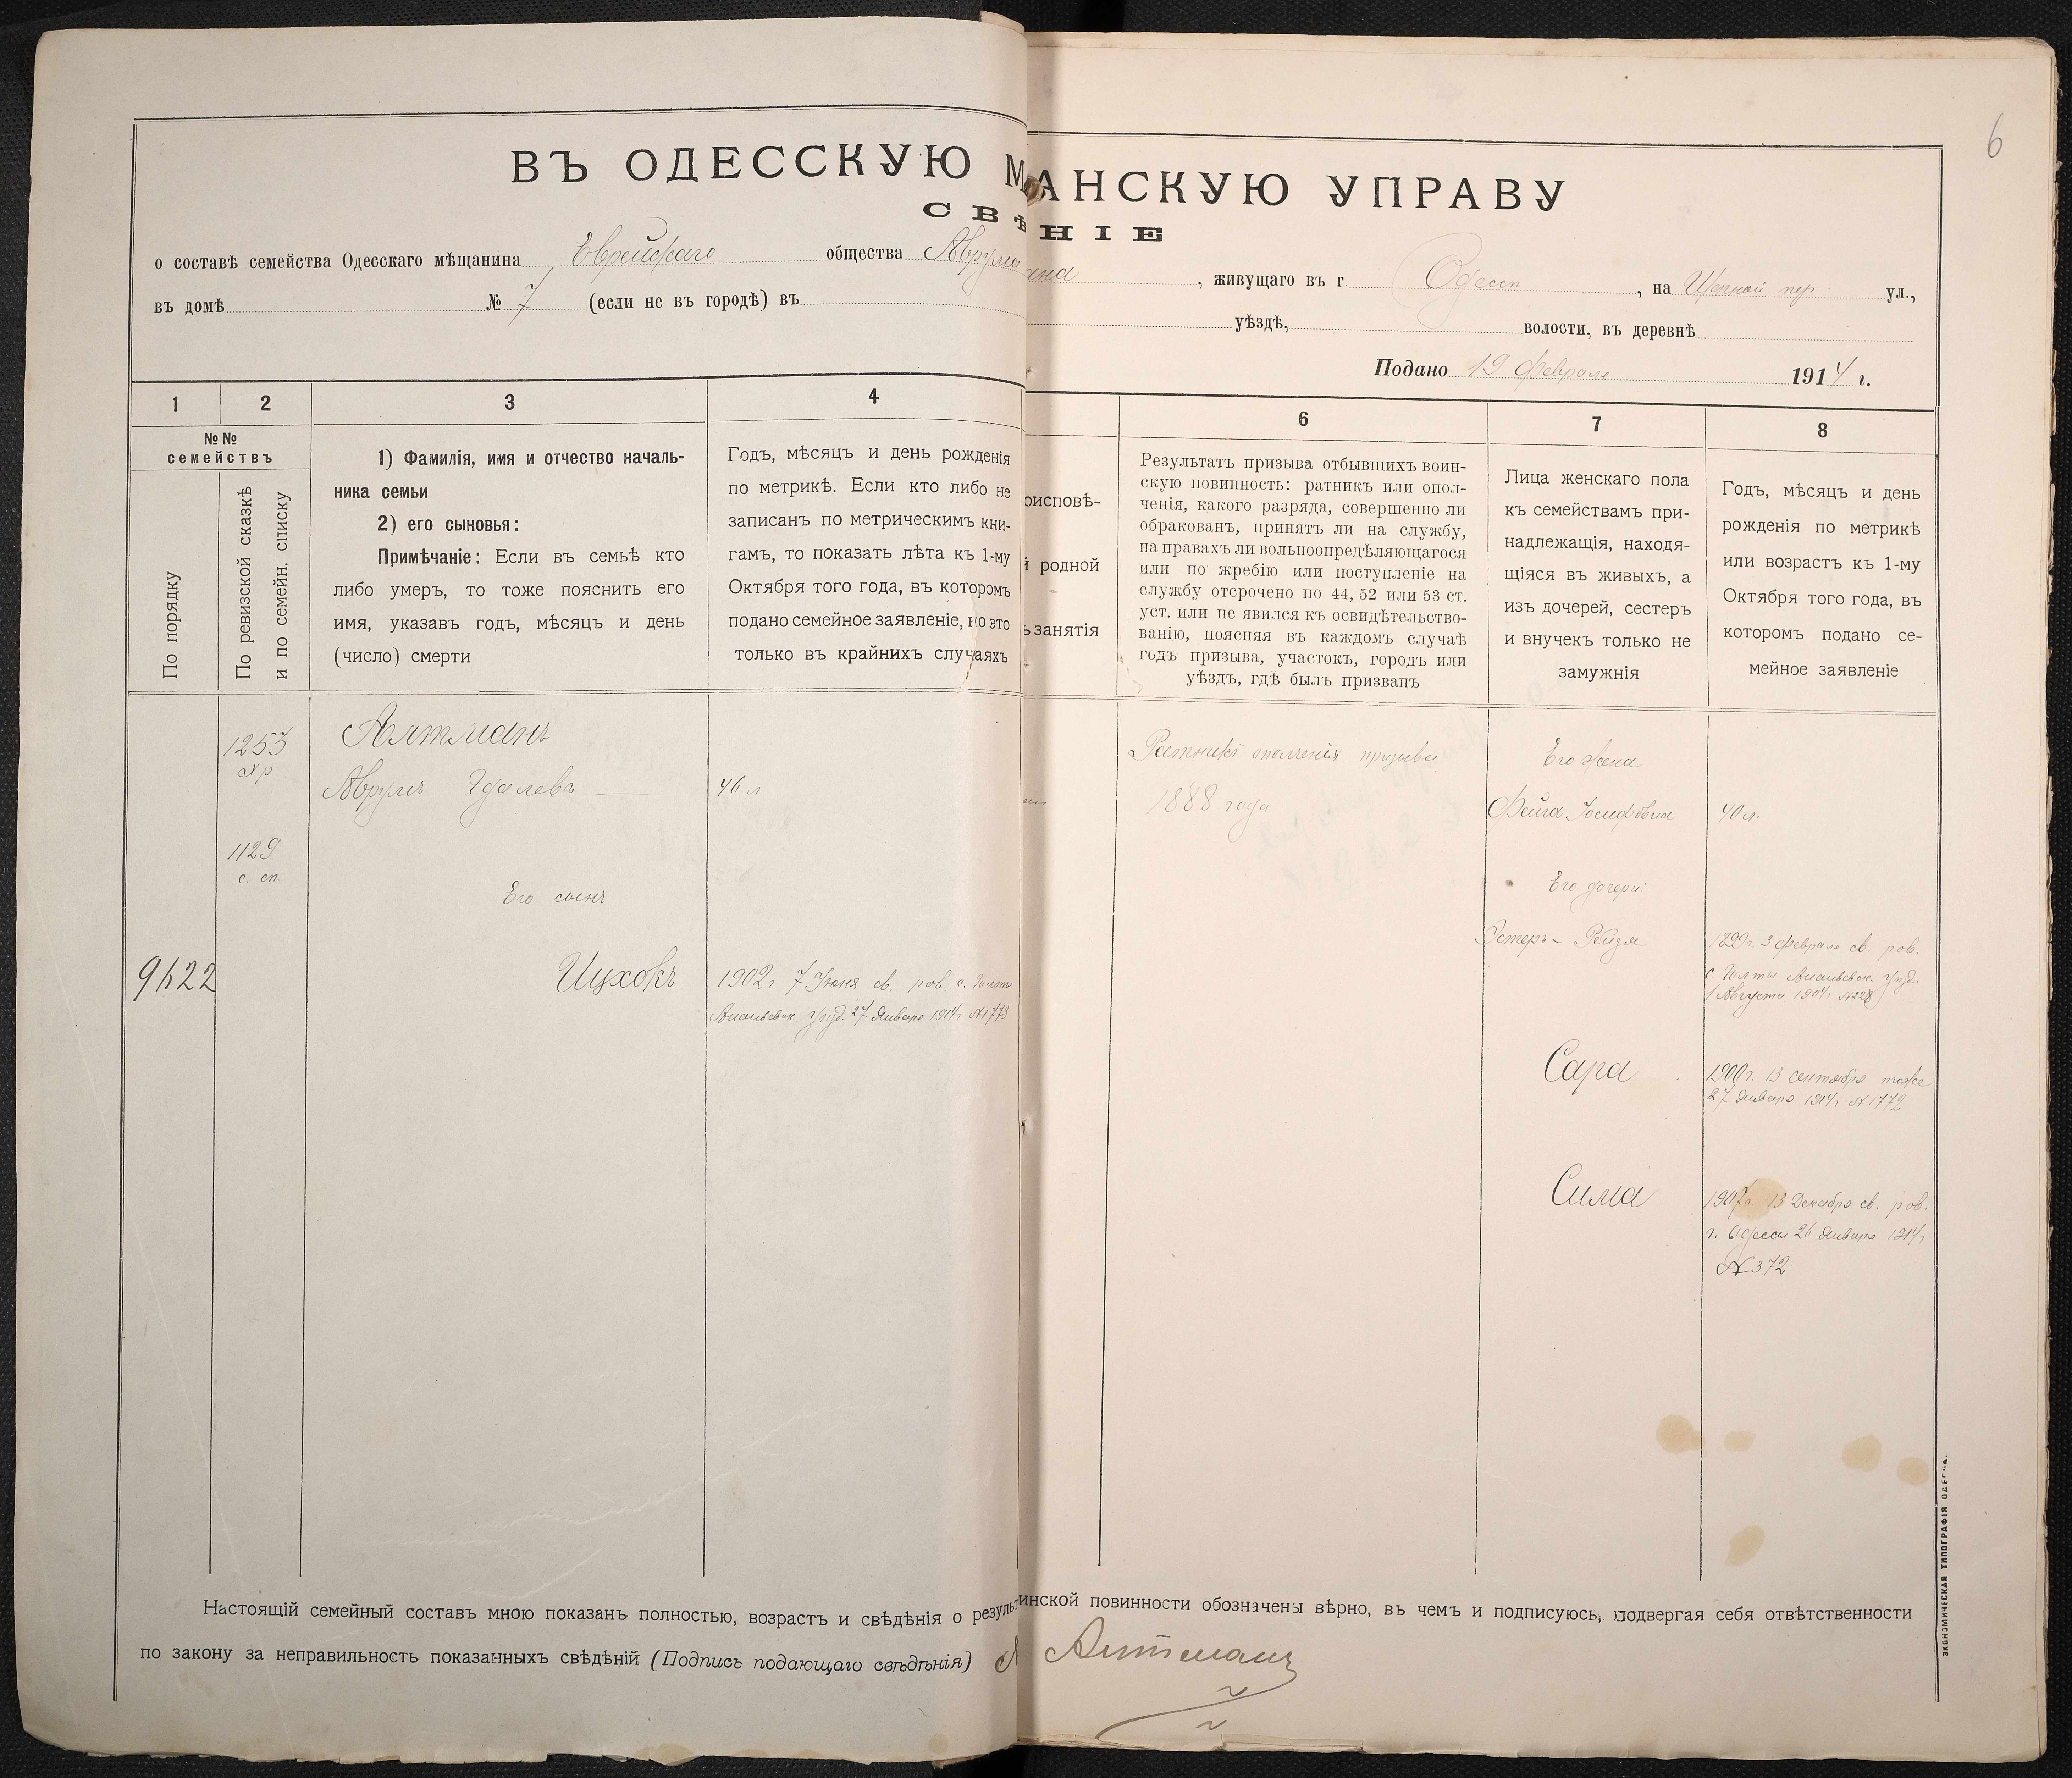 6
ВЪ ОДЕССКУЮ М АНСКУЮ УПРАВУ
СВѢ НІЕ
о составѣ семейства Одесскаго мѣщанина Еврейскаго общества Аврума ана, живущаго въ г. Одессѣ, на Цепной пер. ул.,
въ домѣ № 7 (если не въ городѣ) въ уѣздѣ, волости, въ деревнѣ
Подано 19 Февраля 1914 г.
1 2 3 4 6 7 8
№№ семействъ
По порядку
По ревизской сказкѣ и по семейн. списку
1) Фамилія, имя и отчество началь-
ника семьи
2) его сыновья:
Примѣчаніе: Если въ семьѣ кто
либо умеръ, то тоже пояснить его
имя, указавъ годъ, мѣсяцъ и день
(число) смерти
Годъ, мѣсяцъ и день рожденія
по метрикѣ. Если кто либо не
записанъ по метрическимъ кни-
гамъ, то показать лѣта къ 1-му
Октября того года, въ которомъ
подано семейное заявленіе, но это
только въ крайнихъ случаяхъ
роисповѣ-
й родной
ъ занятія
Результатъ призыва отбывшихъ воин-
скую повинность: ратникъ или опол-
ченія, какого разряда, совершенно ли
обракованъ, принятъ ли на службу,
на правахъ ли вольноопредѣляющагося
или по жребію или поступленіе на
службу отсрочено по 44, 52 или 53 ст.
уст. или не явился къ освидѣтельство-
ванію, поясняя въ каждомъ случаѣ
годъ призыва, участокъ, городъ или
уѣздъ, гдѣ былъ призванъ
Лица женскаго пола
къ семействамъ при-
надлежащія, находя-
щіяся въ живыхъ, а
изъ дочерей, сестеръ
и внучекъ только не
замужнія
Годъ, мѣсяцъ и день
рожденія по метрикѣ
или возрастъ къ 1-му
Октября того года, въ
которомъ подано се-
мейное заявленіе
1253
Алтманъ
Аврумъ Гдалевъ —
46 л
Ратникъ ополченія призыва
1888 года
Его жена
Фейга Іосифовна
40 л.
1129
с. сп.
Его сынъ
9622
Ицхокъ
1902 г 7 Июня св. рав. с. Голты
Ананьевск. уѣзд. 27 Января 1914 г № 1773
Его дочери
Эстеръ-Рейзя
1899 г. 3 Февраля св. рав.
с Голты Ананьевск. уѣзда
1 Августа 1914 г № 228
Сара
1900 г. 13 сентября тоже
27 Января 1914 г № 1772
Сима
1907 г. 13 Декабря св. рав.
г. Одессы 26 Января 1914 г
№ 372
Настоящій семейный составъ мною показанъ полностью, возрастъ и свѣдѣнія о результ инской повинности обозначены вѣрно, въ чемъ и подписуюсь, подвергая себя отвѣтственности
по закону за неправильность показанныхъ свѣдѣній (Подпись подающаго свѣдѣнія) А Алтманъ
ЭКОНОМИЧЕСКАЯ ТИПОГРАФІЯ ОДЕССА.